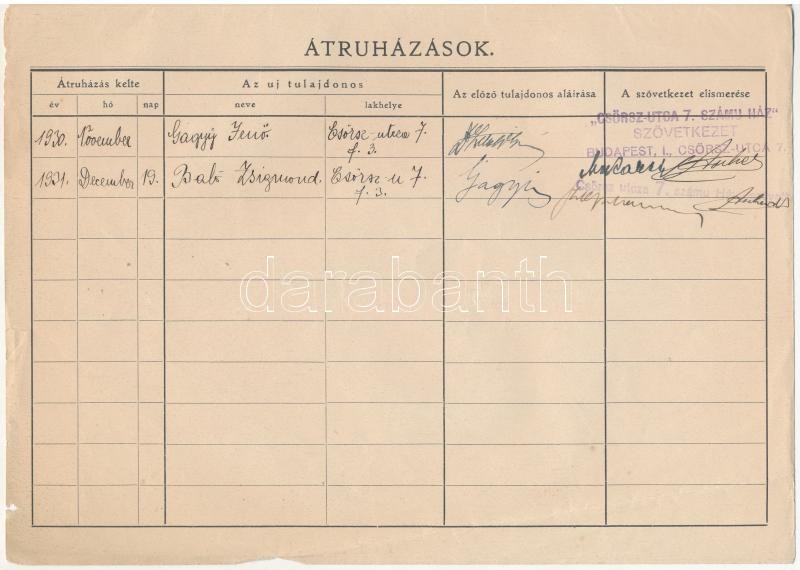 ÁTRUHÁZÁSOK.
Átruházás kelte
Az uj tulajdonos
Az előző tulajdonos aláirása
A szövetkezet elismerése
év hó nap neve lakhelye
„CSÖRSZ-UTCA 7. SZÁMU HÁZ"
SZÖVETKEZET
BUDAPEST, I., CSÖRSZ-UTCA 7.
1930. November Gagyij Jenő. Csörsz-utca 7.
f. 3.
1931. December 19. Babó Zsigmond. Csörsz u 7.
f. 3.
Gagyi
Csörsz utca 7. számu Ház
darabanth